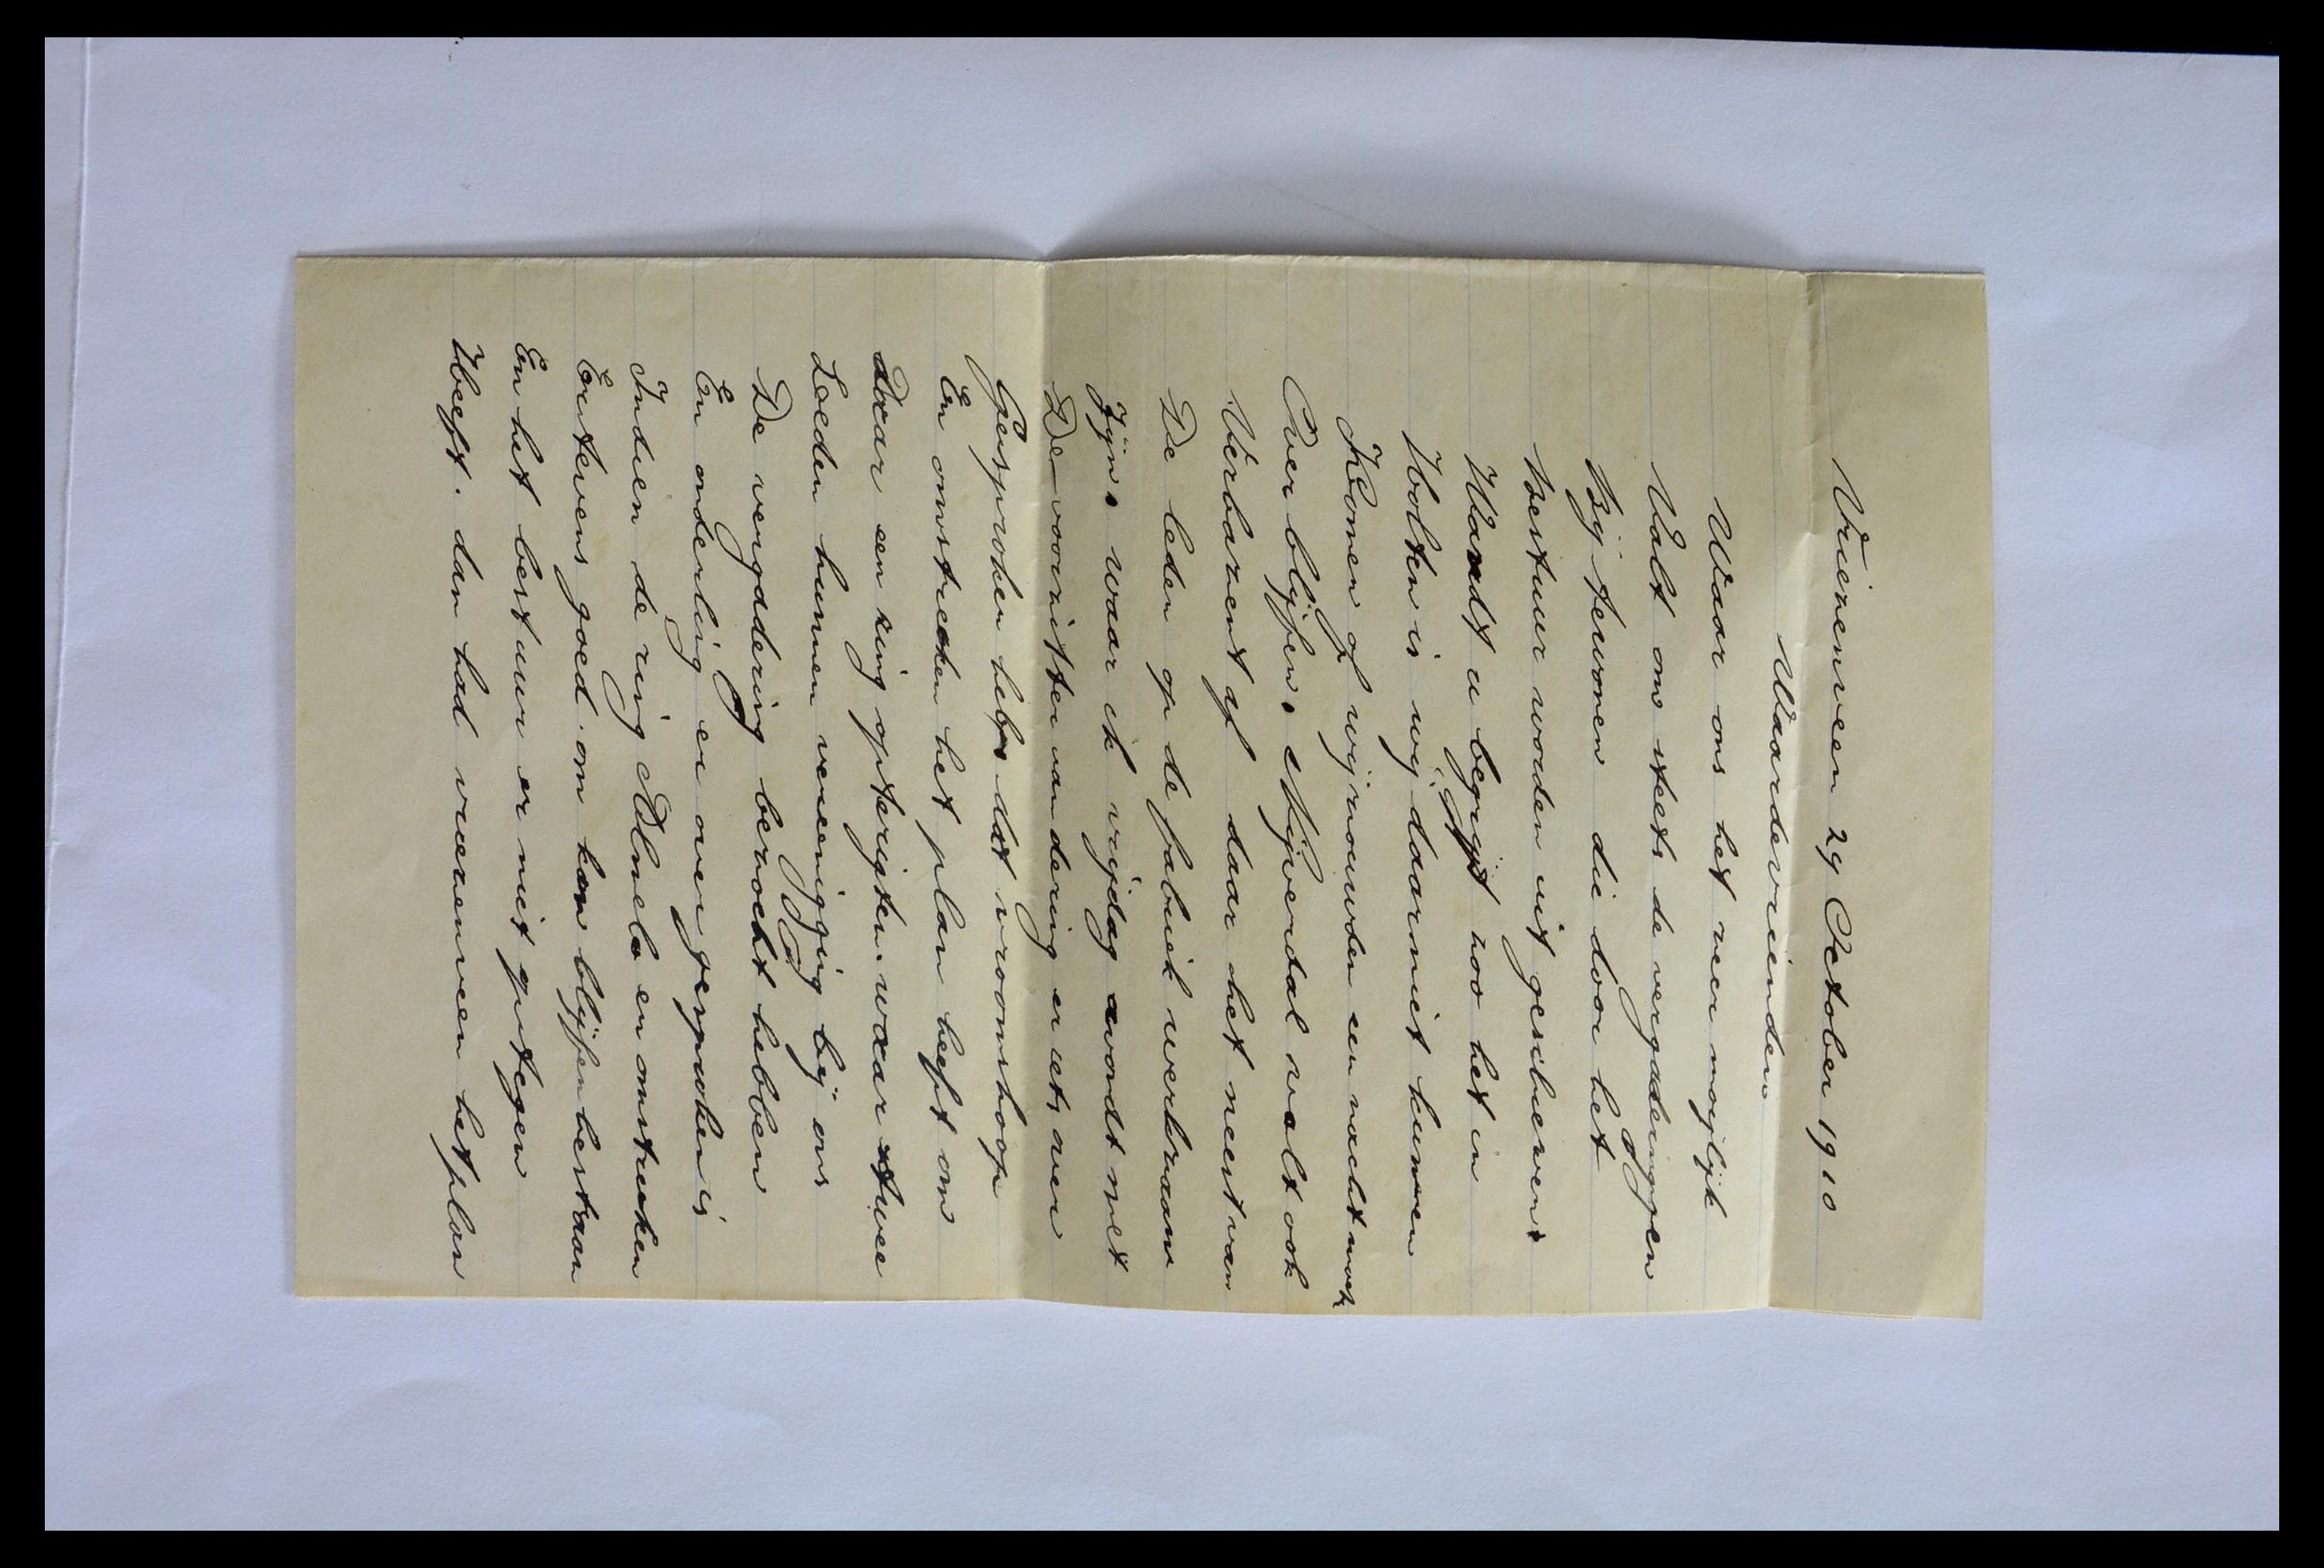 Vriezenveen 29 October 1910
Waardevrienden
Waar ons het zeer moijlijk
Valt om steets de vergaderinggen
Bij tewonen die door het
Bestuur worden uit geschreven.
Wandt u begrijpt zoo het in
Holten is wij daarniet kunnen
Komen of wij zouwden een nacht moet
Over blijfen. Nijverdal valt ook
Verbazent af daar het neest van
De leden op de fabriek werkzaam
Zijn. waar ik vrijdag avondt met
De voorzitter van dering er iets over
Gesproken heb dat vroomshoop
En omstrecken het plan heeft om
daar een ring opterigten. waar twee
Leeden hunnen vereenigging bij ons
De vergadering bezocht hebben
En onderling er over gesproken is
Indien de ring Almelo en omstrecken
Eertevens goed om kon blijfen bestaan
En het bestuur er niet optegen
Heeft. dan had vriezenveen het plan